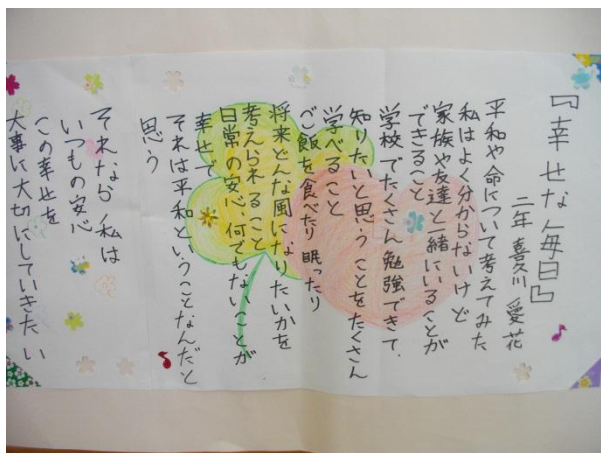 『幸せな毎日』
二年 喜久川 愛花
平和や命について考えてみた
私はよく分からないけど
家族や友達と一緒にいることが
できること
学校でたくさん勉強できて、
知りたいと思うことをたくさん
学べること
ご飯を食べたり眠ったり
将来どんな風になりたいかを
考えられること
日常の安心、何でもないことが
幸せで
それは平和ということなんだと
思う
それなら私は
いつもの安心
この幸せを
大事に大切にしていきたい